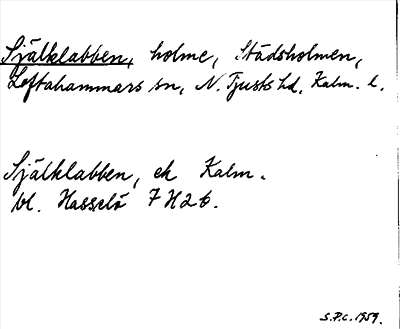 Själklabben, holme, Städsholmen,
Loftahammars sn, N. Tjusts hd, Kalm. l.
Själklabben, ek Kalm.
bl. Hasselö 7 H 2 b.
S.P.C. 1959.